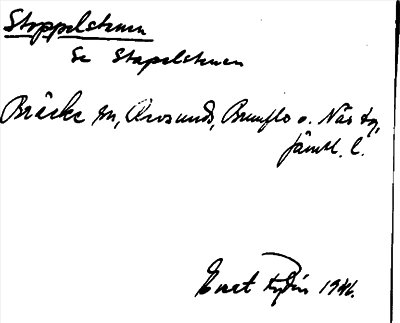 Stoppelstenen
Se Stapelstenen
Bräcke sn, Oviksund, Brunflo o. Näs tg,
Jämtl. l.
1946.